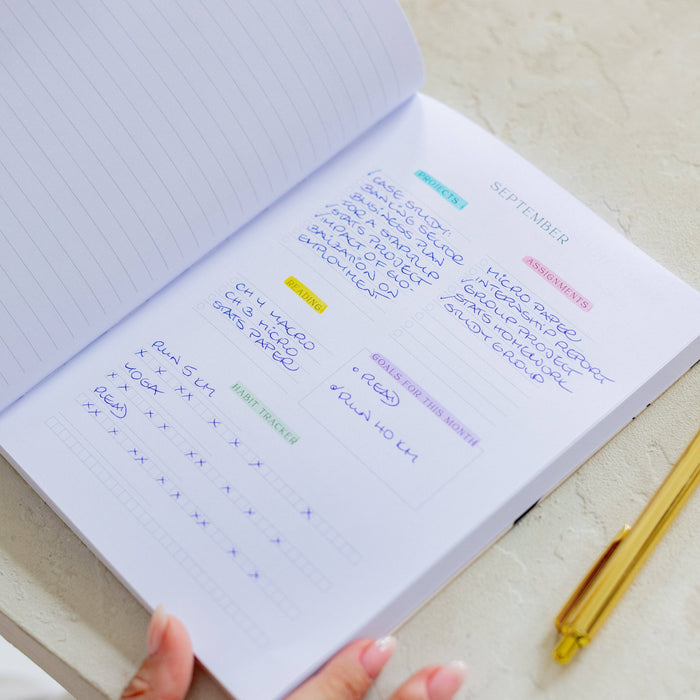 SEPTEMBER
PROJECTS
/CASE STUDY:
BANKING SECTOR
BUSINESS PLAN
FOR A STARTUP
/STATS PROJECT
IMPACT OF GLO-
BALIZATION ON
EMPLOYMENT
ASSIGNMENTS
MICRO PAPER
/INTERNSHIP REPORT
GROUP PROJECT
/STATS HOMEWORK
STUDY GROUP
READING
CH 4 MACRO
CH 3 MICRO
STATS PAPER
GOALS FOR THIS MONTH
READ
RUN 40 KM
HABIT TRACKER
RUN 5 KM
x x xx x x x x
YOGA
x x x xx x x x
READ
xx x xx x x xx x x